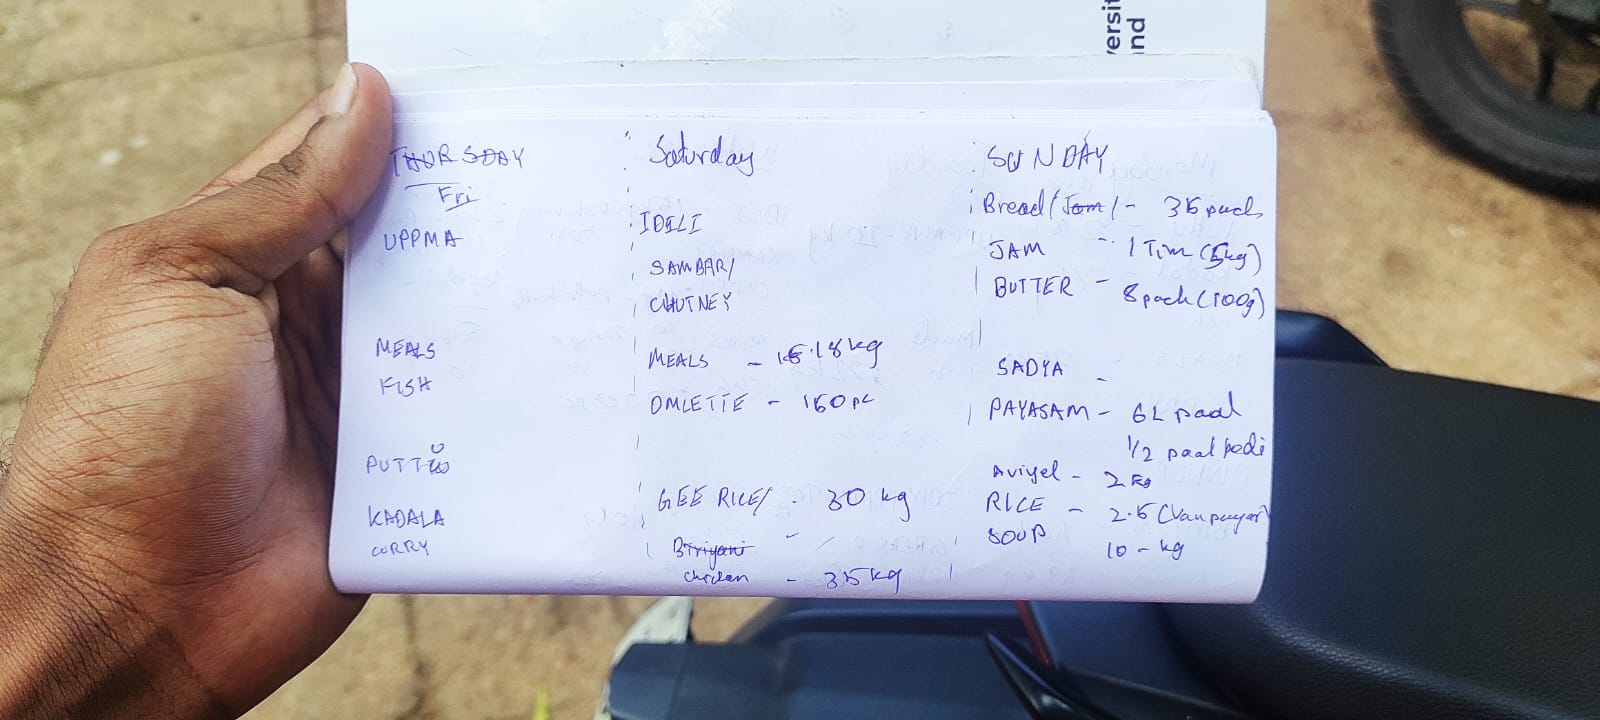 versit
nd
THURSDAY
Fri
UPPMA
MEALS
FISH
PUTTU
KADALA
CURRY
Saturday
IDILI
SAMBAR/
CHUTNEY
MEALS - 18 kg
OMLETTE - 160 pc
GEE RICE/ - 30 kg
Biriyani
chicken - 35 kg
SUNDAY
Bread/Jam/ - 35 pack
JAM - 1 Tim (5kg)
BUTTER - 8 pack (100g)
SADYA -
PAYASAM - 6L paal
1/2 paal podi
Aviyel - 2 kg
RICE - 2.5 (Vanpayar)
SOUP 10 - kg